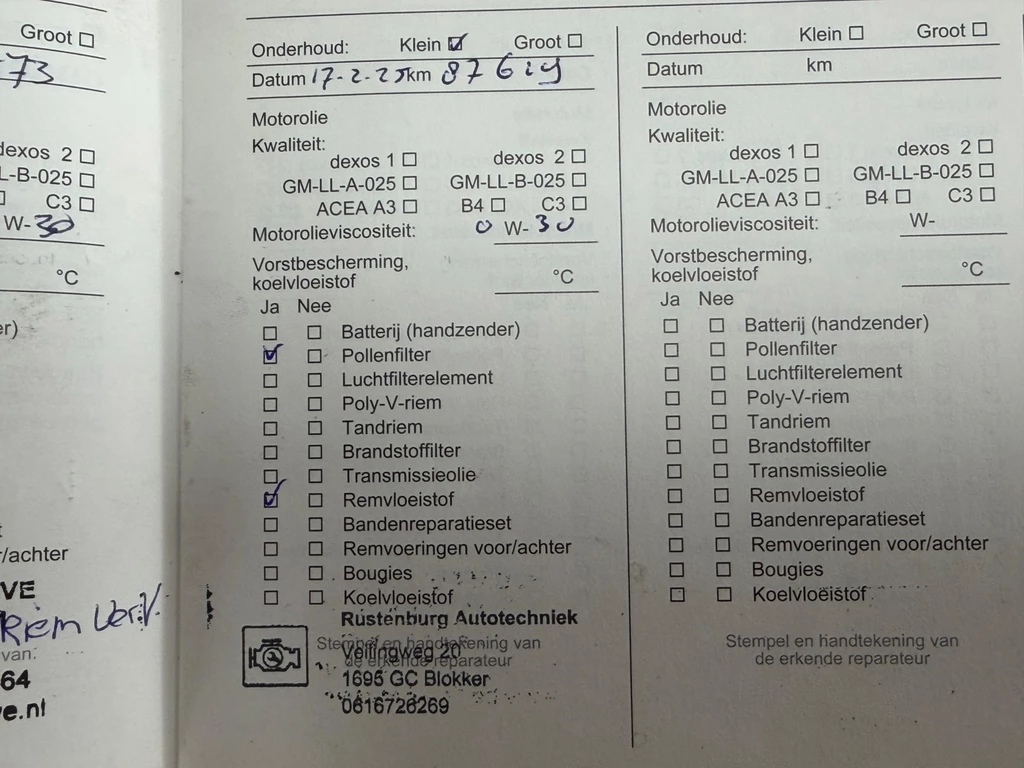 Groot
73
dexos 2
L-B-025
C3
W-30
°C
er)
r/achter
VE
Riem Ver.V.
van:
64
e.nl
Onderhoud: Klein Groot
Datum 17-2-25 km
Motorolie
Kwaliteit:
dexos 1 dexos 2
GM-LL-A-025 GM-LL-B-025
ACEA A3 B4 C3
Motorolieviscositeit: 0 W-30
Vorstbescherming,
koelvloeistof °C
Ja Nee
Batterij (handzender)
Pollenfilter
Luchtfilterelement
Poly-V-riem
Tandriem
Brandstoffilter
Transmissieolie
Remvloeistof
Bandenreparatieset
Remvoeringen voor/achter
Bougies
Koelvloeistof
Rustenburg Autotechniek
Stempel en handtekening van
Veilingweg 20
de erkende reparateur
1695 GC Blokker
0616726269
Onderhoud: Klein Groot
Datum km
Motorolie
Kwaliteit:
dexos 1 dexos 2
GM-LL-A-025 GM-LL-B-025
ACEA A3 B4 C3
Motorolieviscositeit: W-
Vorstbescherming,
koelvloeistof °C
Ja Nee
Batterij (handzender)
Pollenfilter
Luchtfilterelement
Poly-V-riem
Tandriem
Brandstoffilter
Transmissieolie
Remvloeistof
Bandenreparatieset
Remvoeringen voor/achter
Bougies
Koelvloeistof
Stempel en handtekening van
de erkende reparateur